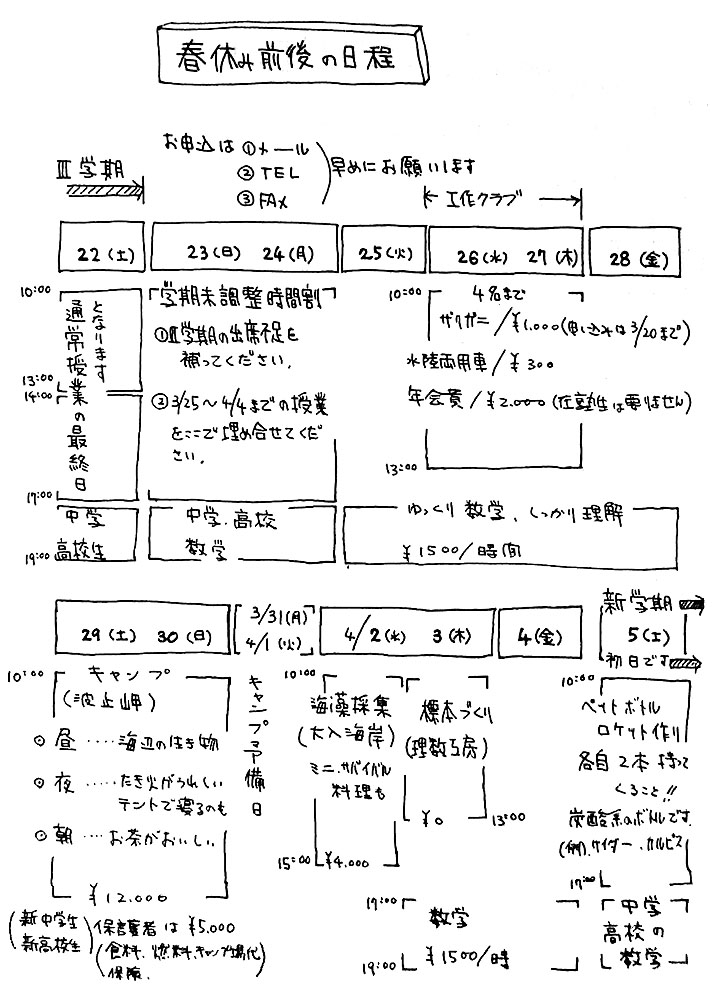 春休み前後の日程
お申込は ①メール
② TEL
③ FAX
早めにお願いします
Ⅲ 学期
工作クラブ
22(土)
23(日) 24(月)
25(火)
26(水) 27(木)
28(金)
10:00
13:00
14:00
17:00
19:00
通常授業の最終日
となります
中学
高校生
学期末調整時間割
①Ⅲ学期の出席不足を
補ってください.
②3/25～4/4までの授業
をここで埋め合せてくだ
さい.
中学.高校
数学
10:00
4名まで
ザリガニ/¥1,000(申し込みは3/20まで)
水陸両用車/¥300
年会費/¥2.000(在塾生は要りません)
13:00
ゆっくり 数学、しっかり理解
¥1500/時間
29(土) 30(日)
3/31(月)
4/1(火)
4/2(水) 3(木)
4(金)
新学期
5(土)
初日です
10:00
キャンプ
(波止岬)
◎ 昼 ‥‥ 海辺の生き物
◎ 夜 ‥‥ たき火がうれしい
テントで寝るのも
◎ 朝 ‥‥ お茶がおいしい
¥12.000
(新中学生
新高校生)
保護者は ¥5.000
(食料、燃料、キャンプ場代
保険.)
キャンプ予備日
10:00
海藻採集
(大入海岸)
ミニ.サバイバル
料理も
15:00
¥4.000
標本づくり
(理数工房)
¥0
13:00
17:00
数学
19:00
¥1500/時
10:00
ペットボトル
ロケット作り
各自 2本 持って
くること!!
炭酸系のボトルです.
(例)、サイダー.カルピス
17:00
中学
高校の
数学